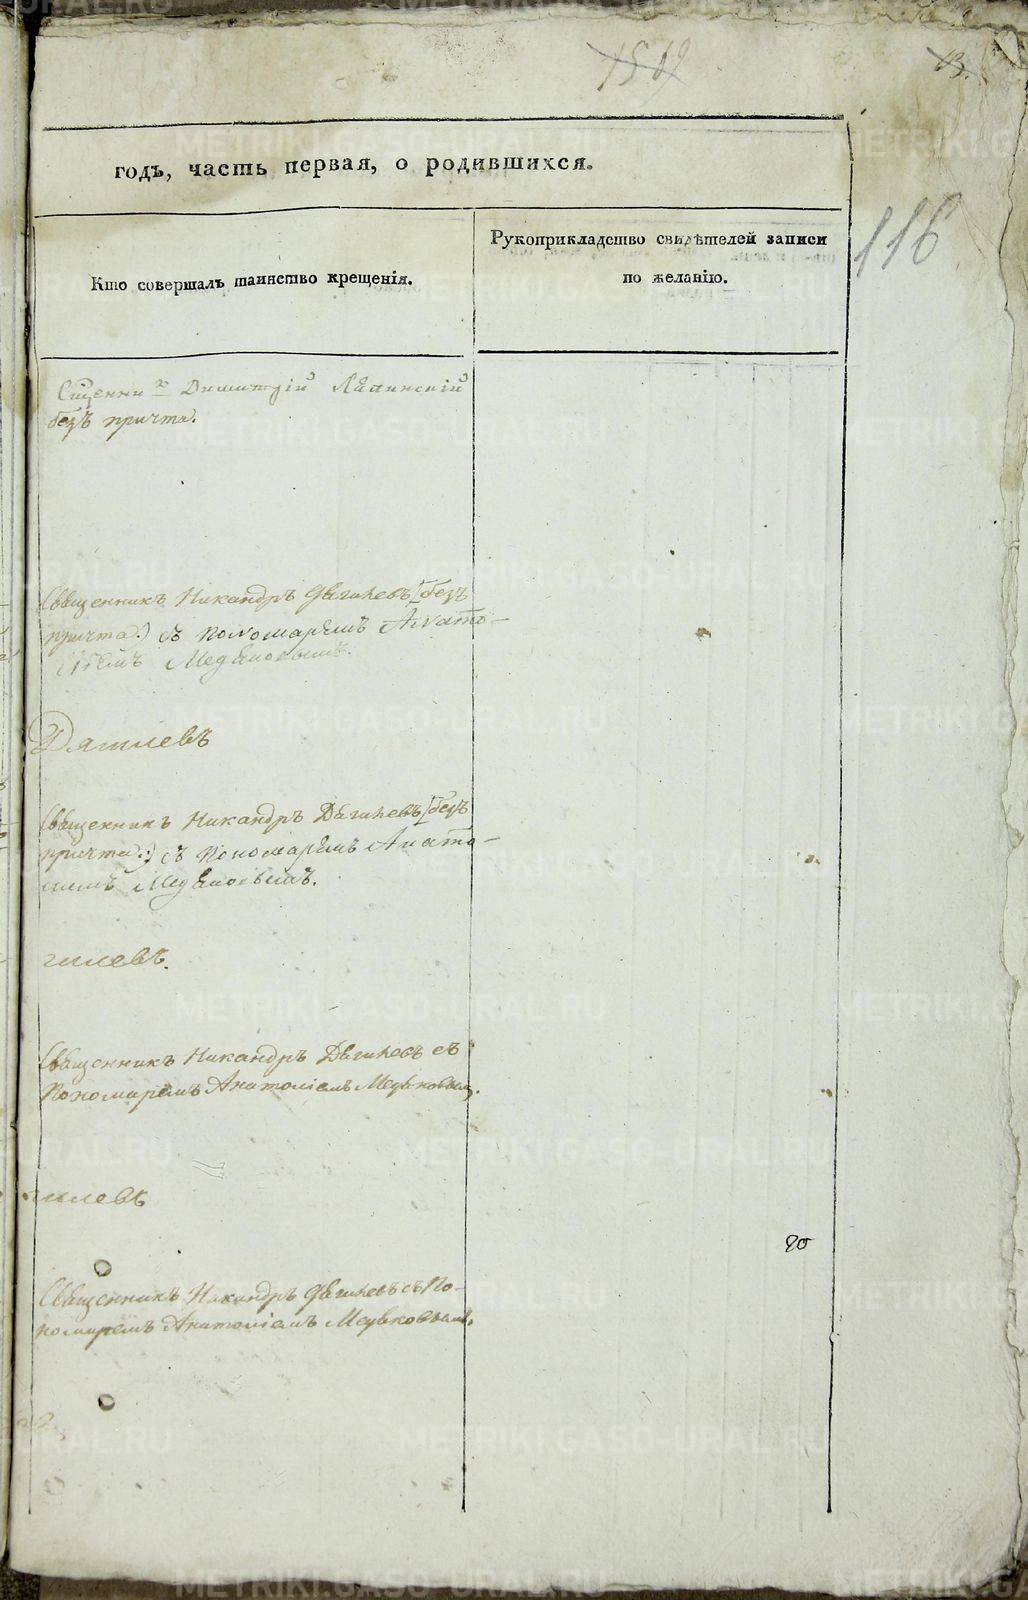 13.
116
годъ, часть первая, о родившихся.
Кто совершалъ таинство крещенія.
Рукоприкладство свидѣтелей записи
по желанію.
Димитрій
безъ причта.
Священникъ Никандръ Дягилевъ (безъ
причта.) съ пономаремъ Анато-
ліемъ
Дягилевъ
Священникъ Никандръ Дягилевъ (безъ
причта.) съ пономаремъ Анато-
ліемъ
гилевъ.
Священникъ Никандръ Дягилевъ съ
пономаремъ Анатоліемъ
гилевъ
20
Священникъ Никандръ Дягилевъ съ по-
номаремъ Анатоліемъ
METRIKI.GASO-URAL.RU